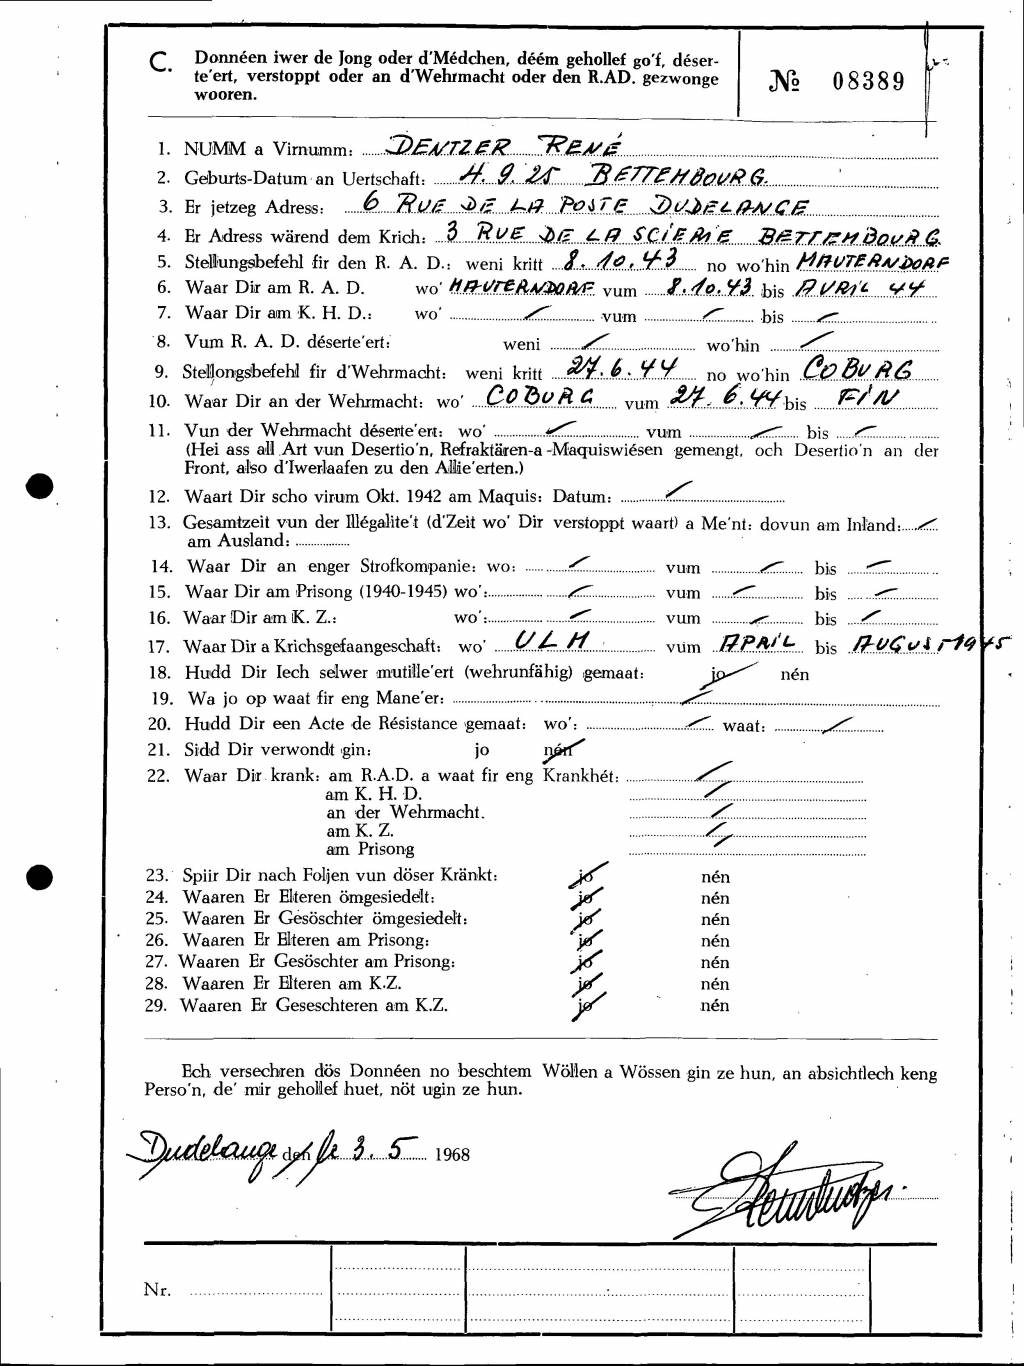 C. Donnéen iwer de Jong oder d'Médchen, déém gehollef go'f, déser-
te'ert, verstoppt oder an d'Wehrmacht oder den R.AD. gezwonge
wooren.
№ 08389
1. NUMM a Virnumm: DENTZER RENÉ
2. Geburts-Datum an Uertschaft: 4.9.25 BETTEMBOURG.
3. Er jetzeg Adress: 6 RUE DE LA POSTE DUDELANGE
4. Er Adress wärend dem Krich: 3 RUE DE LA SCIERIE BETTEMBOURG
5. Stellungsbefehl fir den R. A. D.: weni kritt 8.10.43 no wo'hin MAUTERNDORF
6. Waar Dir am R. A. D. wo' MAUTERNDORF vum 8.10.43 bis AVRIL 44
7. Waar Dir am K. H. D.: wo' vum bis
8. Vum R. A. D. déserte'ert: weni wo'hin
9. Stellongsbefehl fir d'Wehrmacht: weni kritt 27.6.44 no wo'hin COBURG
10. Waar Dir an der Wehrmacht: wo' COBURG vum 27.6.44 bis FIN
11. Vun der Wehrmacht déserte'ert: wo' vum bis
(Hei ass all Art vun Desertio'n, Refraktären-a -Maquiswiésen gemengt, och Desertio'n an der
Front, also d'Iwerlaafen zu den Allie'erten.)
12. Waart Dir scho virum Okt. 1942 am Maquis: Datum:
13. Gesamtzeit vun der Illégalite't (d'Zeit wo' Dir verstoppt waart) a Me'nt: dovun am Inland:
am Ausland:
14. Waar Dir an enger Strofkompanie: wo: vum bis
15. Waar Dir am Prisong (1940-1945) wo': vum bis
16. Waar Dir am K. Z.: wo': vum bis
17. Waar Dir a Krichsgefaangeschaft: wo' ULM vum APRIL bis AUGUST 1945
18. Hudd Dir Iech selwer mutille'ert (wehrunfähig) gemaat: jo nén
19. Wa jo op waat fir eng Mane'er:
20. Hudd Dir een Acte de Résistance gemaat: wo': waat:
21. Sidd Dir verwondt gin: jo nén
22. Waar Dir krank: am R.A.D. a waat fir eng Krankhét:
am K. H. D.
an der Wehrmacht.
am K. Z.
am Prisong
23. Spiir Dir nach Foljen vun döser Kränkt: jo nén
24. Waaren Er Elteren ömgesiedelt: jo nén
25. Waaren Er Gesöschter ömgesiedelt: jo nén
26. Waaren Er Elteren am Prisong: jo nén
27. Waaren Er Gesöschter am Prisong: jo nén
28. Waaren Er Elteren am K.Z. jo nén
29. Waaren Er Geseschteren am K.Z. jo nén
Ech versechren dös Donnéen no beschtem Wöllen a Wössen gin ze hun, an absichtlech keng
Perso'n, de' mir gehollef huet, nöt ugin ze hun.
Dudelange den le 3.5 1968
Nr.